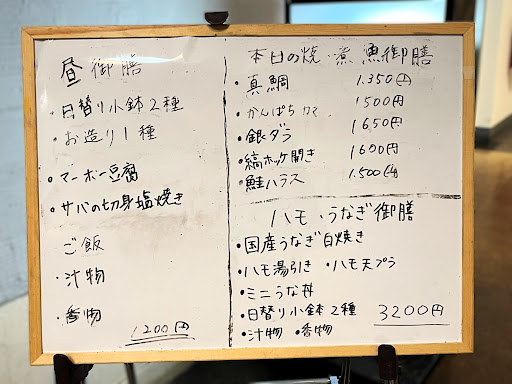 昼 御膳
・日替り小鉢2種
・お造り1種
・マーボー豆腐
・サバの切身塩焼き
ご飯
・汁物
・香物
1200円
本日の焼・煮 魚御膳
・真鯛 1.350円
・かんぱちカマ 1500円
・銀ダラ 1650円
・縞ホッケ開き 1600円
・鮭ハラス 1.500円
ハモ・うなぎ御膳
・国産うなぎ白焼き
・ハモ湯引き ・ハモ天プラ
・ミニうな丼
・日替り小鉢2種
・汁物 ・香物
3200円